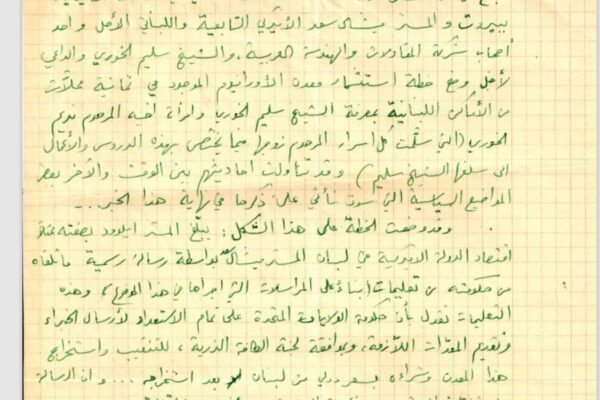 ببيروت والمستر ميشال سعد الأميركي التابعية واللبناني الأصل واحد
أصحاب شركة المقاولات والهندسة العربية، والشيخ سليم الخوري والداعي
لأجل وضع خطة استثمار معدن الأورانيوم الموجود في ثمانية محلات
من الأماكن اللبنانية بمعرفة الشيخ سليم الخوري وامرأة اخيه المرحوم نديم
الخوري (التي سلّمت كل اسرار المرحوم زوجها فيما يختص بهذه الدروس والأعمال
الى سلفها الشيخ سليم) وقد تناولت احاديثهم بين الوقت والآخر بعض
المواضيع السياسية التي سوف نأتي على ذكرها في نهاية هذا الخبر...
وقد وضعت الخطة على هذا الشكل: يبلّغ المستر بصفته ممثل
اقتصاد الدولة الاميركية في لبنان المستر ميشال سعد بواسطة رسالة رسمية ما تلقاه
من حكومته من تعليمات (بناءً على المراسلات التي اجراها في هذا الموضوع)، وهذه
التعليمات تقول بأن حكومة الولايات المتحدة على تمام الاستعداد لأرسال الخبراء
وتقديم المعدّات اللازمة، وبموافقة لجنة الطاقة الذرية، للتنقيب واستخراج
هذا المعدن وشراءه بسعر دولي من لبنان بعد استخراجه... وان الرسالة